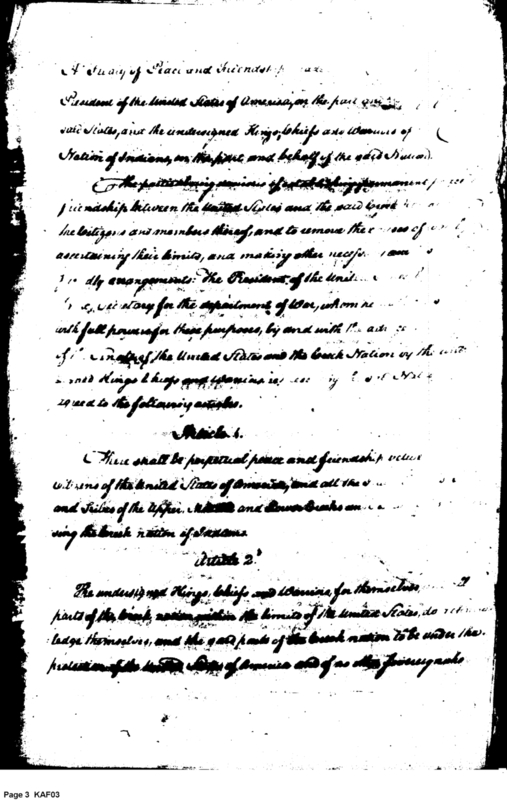 A Treaty of Peace and Friendship made
President of the United States of America, on the part and
said States, and the undersigned Kings, Chiefs and Warriors of
Nation of Indians, on the part and behalf of the said Nation.
The parties being desirous of establishing permanent peace
friendship between the United States and the said Creek
the Citizens and members thereof, and to remove the causes of
ascertaining their limits, and making other necessary
friendly arrangements: The President of the United
Secretary for the department of War, whom he
with full powers for these purposes, by and with the advice
of the Senate of the United States and the Creek Nation by the
Kings Chiefs and Warriors
agreed to the following articles.
Article 1.
There shall be perpetual peace and friendship
Citizens of the United States of America, and all the
and Tribes of the Upper, Middle and Lower Creeks
sing the Creek nation of Indians.
Article 2d
The undersigned Kings, Chiefs and Warriors, for themselves
parts of the Creek nation within the limits of the United States, do
ledge themselves, and the said parts of the Creek nation to be under the
protection of the United States of America and of no other Sovereign
Page 3 KAF03